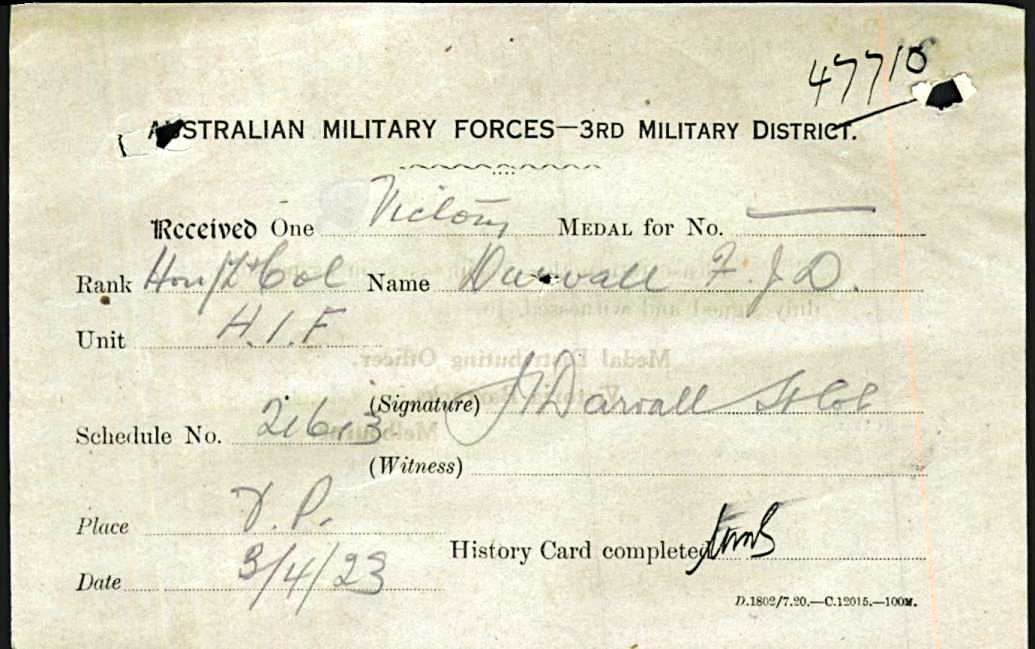 47710
AUSTRALIAN MILITARY FORCES—3RD MILITARY DISTRICT.
Received One Victory MEDAL for No. —
Rank Hon/Lt Col Name Darvall F. J. D.
Unit A.I.F
(Signature) Darvall Lt Col
Schedule No. 2613
(Witness)
Place V. P.
Date 3/4/23
History Card completed
D.1802/7.20.—C.12015.—100M.